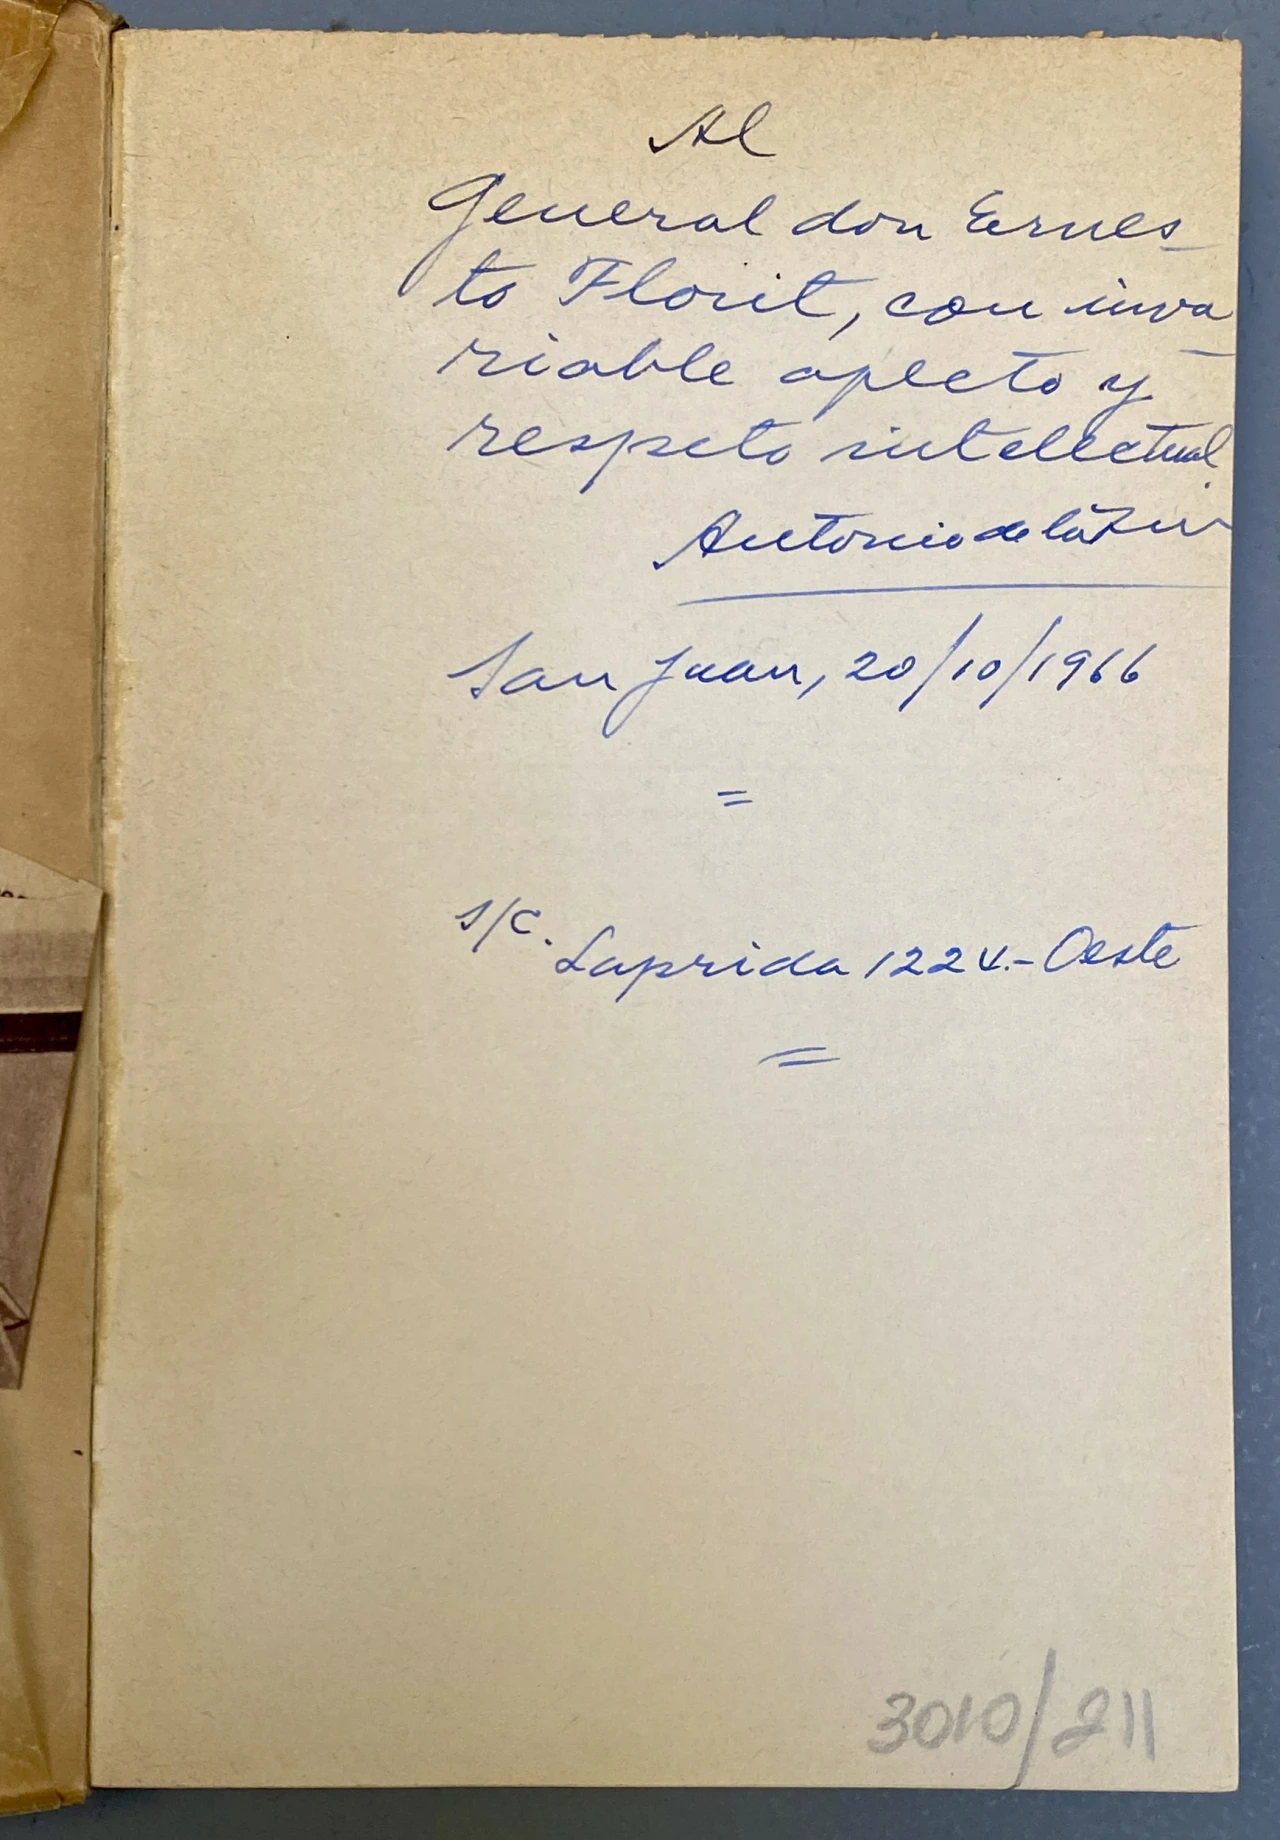 Al
General don Ernes-
to Florit, con inva-
riable afecto y
respeto intelectual
Antonio de la
San Juan, 20/10/1966
=
S/C. Laprida 1224.- Oeste
=
3010/211